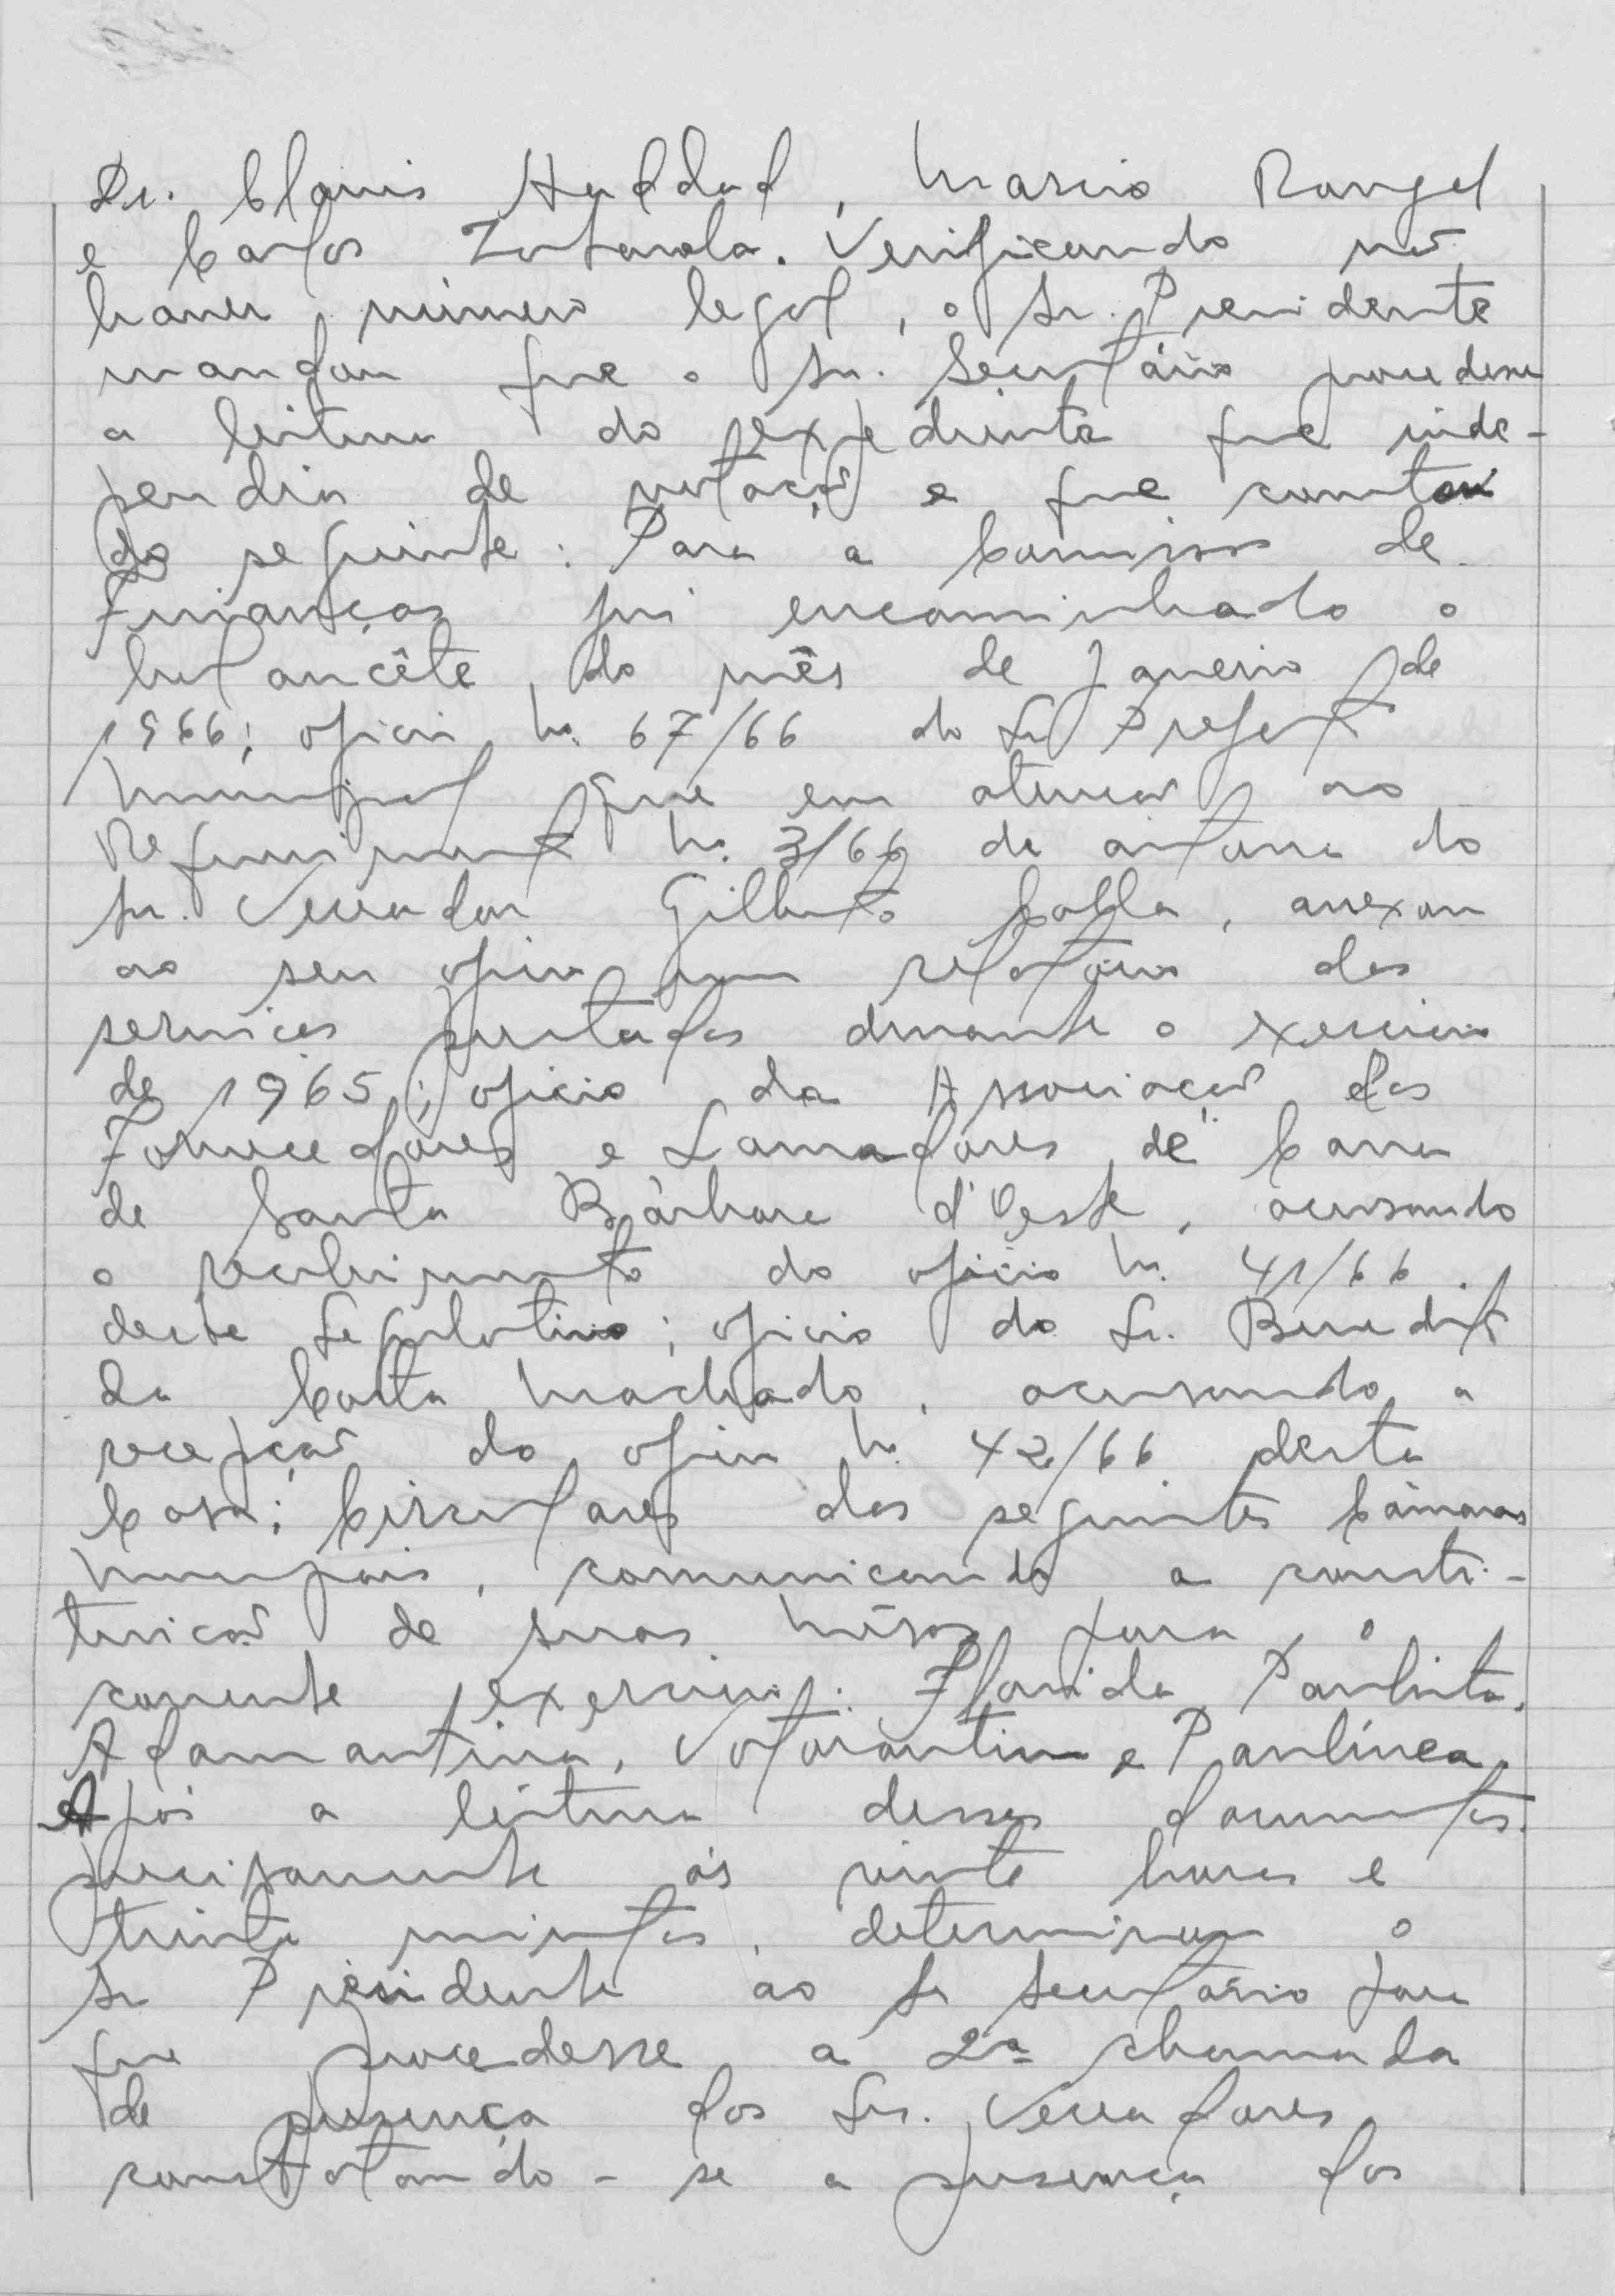 Dr. Clovis Haddad, Marcio Rangel
e Carlos Zotarela. Verificando não
haver número legal, o Sr. Presidente
mandou que o Sr. Secretário procedesse
a leitura do expediente que inde-
pendia de votação e que constou
do seguinte: Para a Comissão de
Finanças foi encaminhado o
balancête do mês de Janeiro de
1966; oficio n. 67/66 do Sr Prefeito
Municipal que em atenção ao
Requerimento n. 3/66 de autoria do
Sr. Vereador Gilberto Colla, anexou
ao seu oficio um relatório dos
serviços prestados durante o exercicio
de 1965; oficio da Associação dos
Fornecedôres e Lavradôres de Cana
de Santa Bárbara d'Oeste, acusando
o recebimento do oficio n. 41/66
deste Legislativo; oficio do Sr. Benedito
da Costa Machado, acusando a
recepção do oficio n. 42/66 desta
Casa; Circulares das seguintes Câmaras
Municipais, comunicando a consti-
tuição de suas Mêsas para o
corrente exercicio: Florida Paulista,
Adamantina, Votorantim e Paulínea.
Após a leitura desses documentos,
precisamente ás vinte horas e
trinta minutos, determinou o
Sr Presidente ao Sr Secretário para
que procedesse a 2ª chamada
de presença dos Srs. Vereadores
constatando-se a presença dos